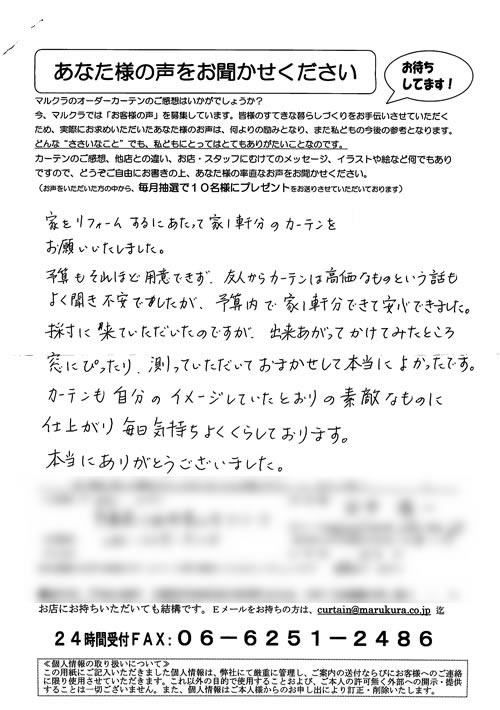 あなた様の声をお聞かせください
お待ち
してます！
マルクラのオーダーカーテンのご感想はいかがでしょうか？
今、マルクラでは「お客様の声」を募集しています。皆様のすてきな暮らしづくりをお手伝いさせていただく
ため、実際にお求めいただいたあなた様のお声は、何よりの励みとなり、また私どもの今後の参考となります。
どんな“ささいなこと”でも、私どもにとってはとてもありがたいことなのです。
カーテンのご感想、他店との違い、お店・スタッフにむけてのメッセージ、イラストや絵など何でもあり
ますので、どうぞご自由にお書きの上、あなた様の率直なお声をお聞かせください。
（お声をいただいた方の中から、毎月抽選で１０名様にプレゼントをお送りさせていただいております）
家をリフォームするにあたって家1軒分のカーテンを
お願いいたしました。
予算もそれほど用意できず、友人からカーテンは高価なものという話も
よく聞き不安でしたが、予算内で家1軒分できて安心できました。
採寸に来ていただいたのですが、出来あがってかけてみたところ
窓にぴったり、測っていただいておまかせして本当によかったです。
カーテンも自分のイメージしていたとおりの素敵なものに
仕上がり毎日気持ちよくくらしております。
本当にありがとうございました。
お店にお持ちいただいても結構です。Ｅメールをお持ちの方は、curtain@marukura.co.jp 迄
２４時間受付FAX：０６－６２５１－２４８６
≪個人情報の取り扱いについて≫
この用紙にご記入いただきました個人情報は、弊社にて厳重に管理し、ご案内の送付ならびにお客様へのご連絡
に限り使用させていただきます。これ以外の目的で使用することおよび、ご本人の許可無く外部への開示・提供
することは一切ございません。また、個人情報はご本人様からのお申し出により訂正・削除いたします。